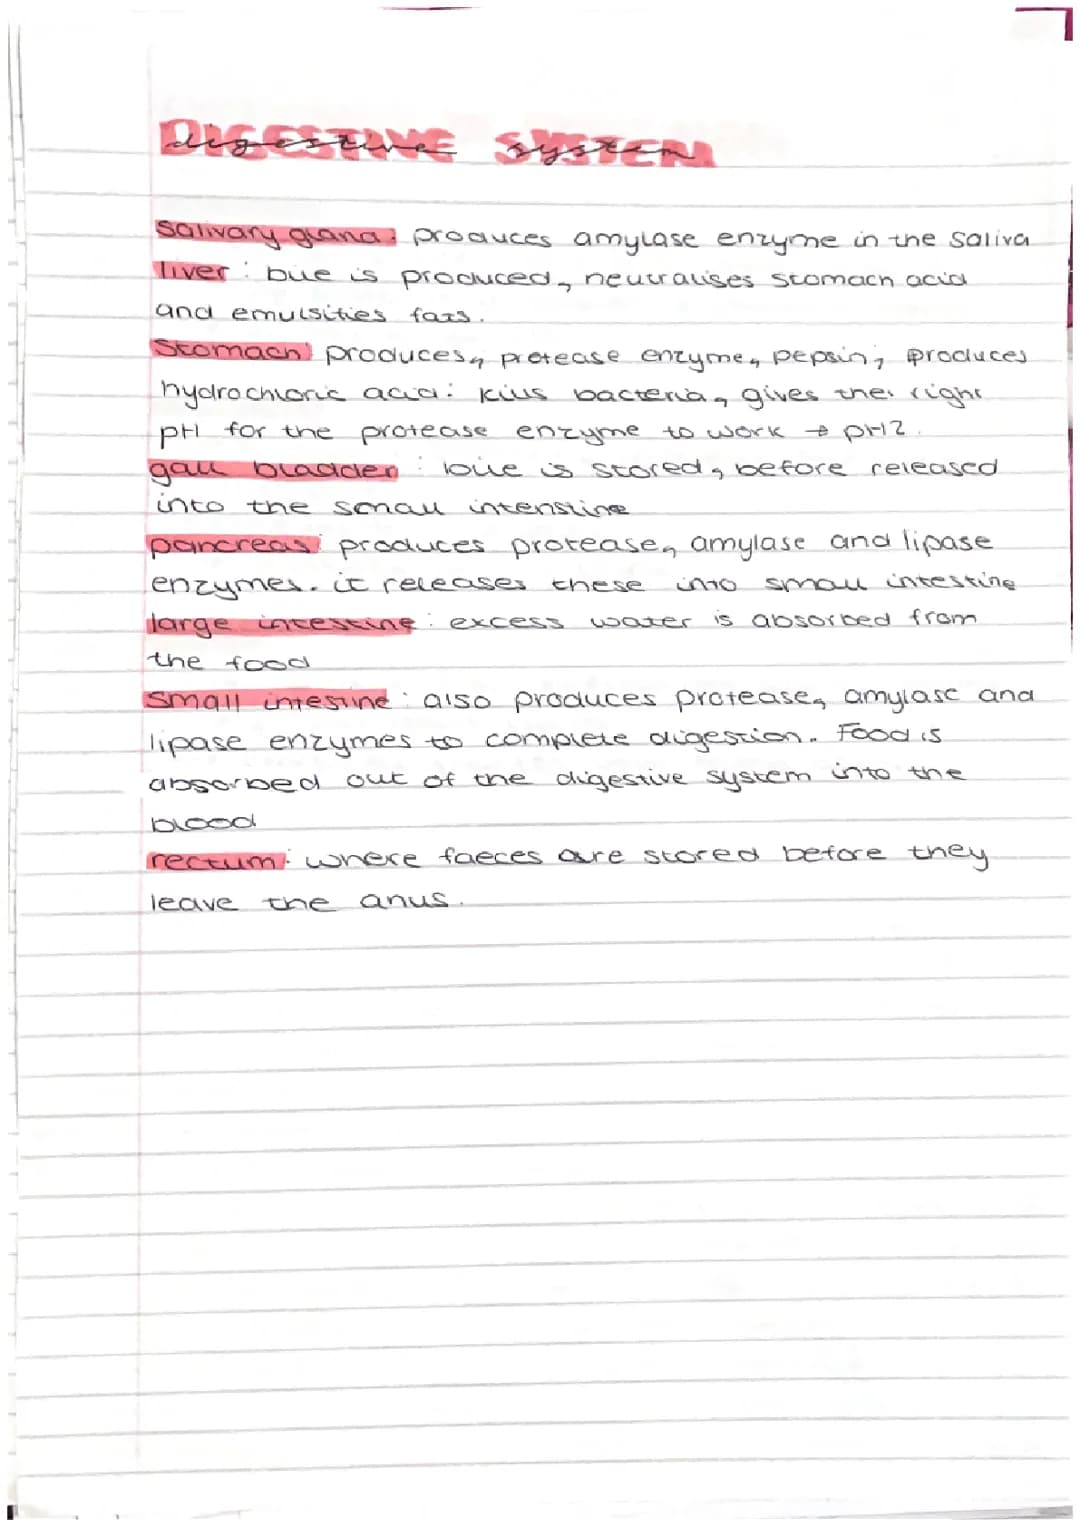 DIGESTIVE SYSTEM
digestive system
Salivary gland: produces amylase enzyme in the saliva
liver : bile is produced, neutralises stomach acid
and emulsifies fats.
Stomach: produces, protease enzyme, pepsin, produces
hydrochloric acid: kills bacteria, gives the right
pH for the protease enzyme to work → pH2.
gall bladder : bile is stored, before released
into the small intenstine
pancreas: produces protease, amylase and lipase
enzymes. it releases these into small intestine
large intestine : excess water is absorbed from
the food
Small intesine : also produces protease, amylase and
lipase enzymes to complete digestion. Food is
absorbed out of the digestive system into the
blood
rectum: where faeces are stored before they
leave the anus.